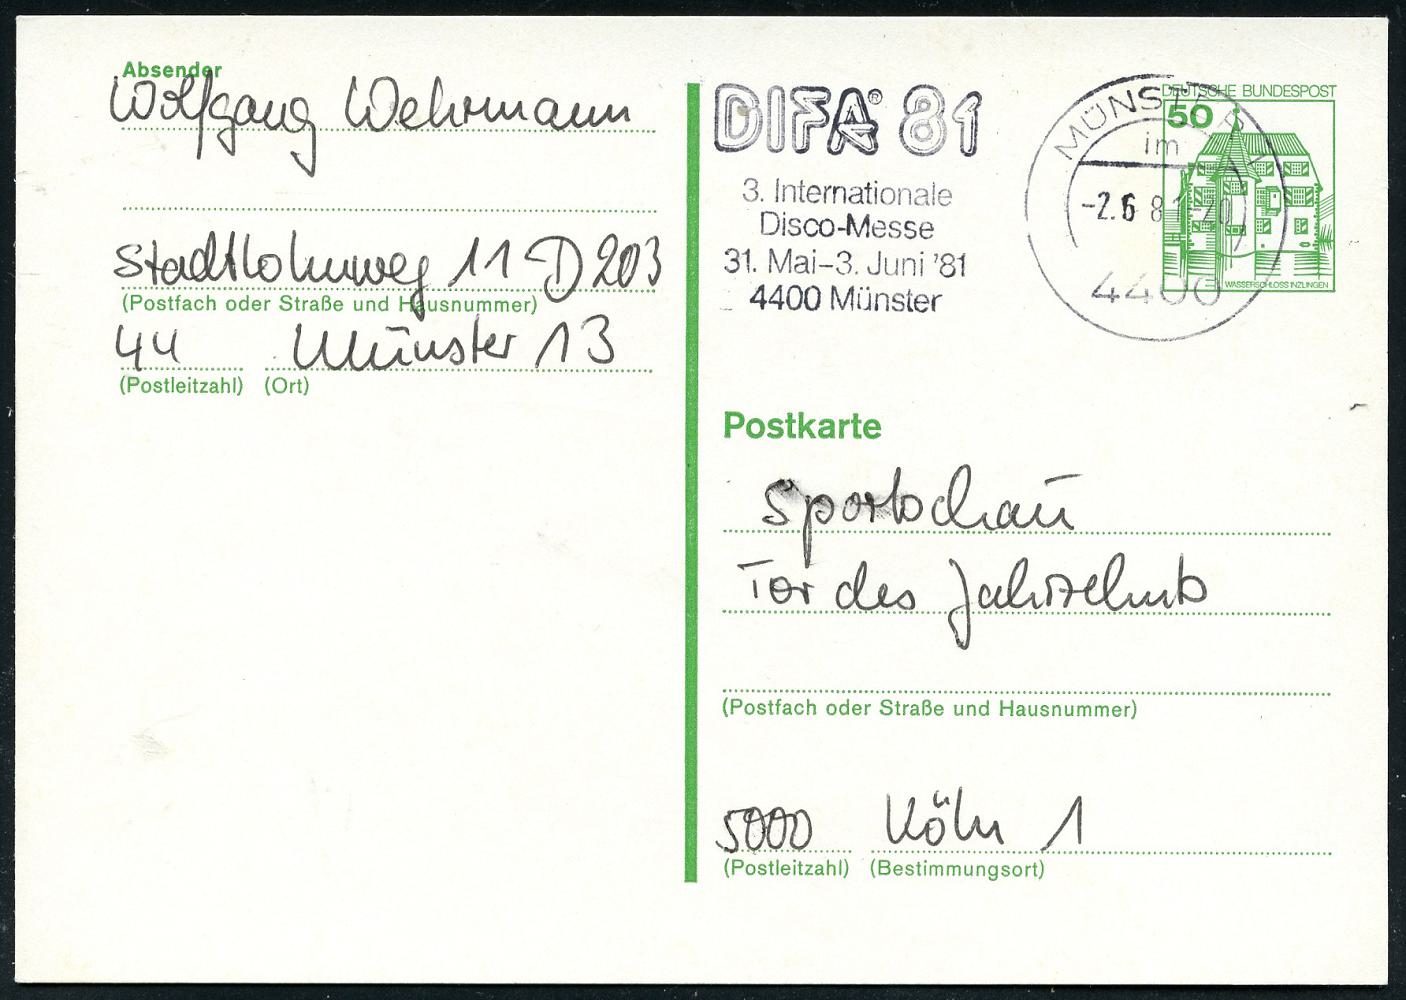 Absender
Wolfgang Wehrmann
Stadtlohnweg 11 D 203
(Postfach oder Straße und Hausnummer)
44 Münster 13
(Postleitzahl) (Ort)
DIFA® 81
3. Internationale
Disco-Messe
31. Mai–3. Juni '81
4400 Münster
MÜNSTER
im
-2.6 81-20
4400
DEUTSCHE BUNDESPOST
50
WASSERSCHLOSS INZLINGEN
Postkarte
Sportschau
Tor des Jahrzehnts
(Postfach oder Straße und Hausnummer)
5000 Köln 1
(Postleitzahl) (Bestimmungsort)